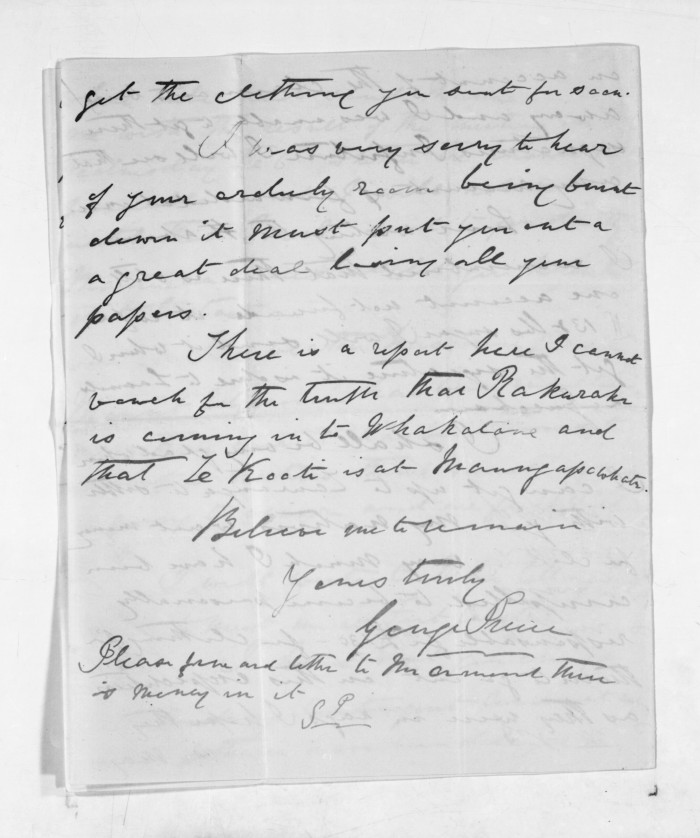 get the clothing you sent for soon.
I was very sorry to hear
of your orderly room being burnt
down it must put you out a
a great deal losing all your
papers.
There is a report here I cannot
vouch for the truth that Rakuraku
is coming in to Whakatane and
that Te Kooti is at Maungapowhatu.
Believe me to remain
Yours truly
George Preece
Please forward letter to Mr Ormond there
is money in it
GP